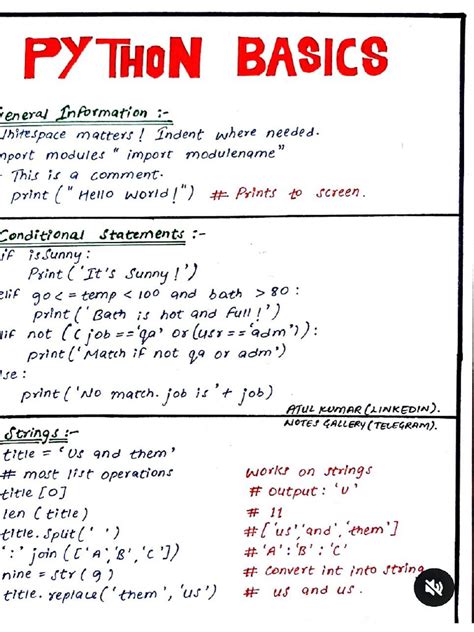 PYTHON BASICS
General Information :-
Whitespace matters! Indent where needed.
mport modules " import modulename"
This is a comment.
print ("Hello World!") # Prints to screen.
Conditional Statements :-
if isSunny :
Print ('It's Sunny!')
elif 90 <= temp < 100 and bath > 80 :
print ('Bath is hot and full!')
lif not ((job == 'qa' or (usr == 'adm')) :
print ('Match if not qa or adm')
lse :
print ('No match. job is' + job)
ATUL KUMAR (LINKEDIN).
NOTES GALLERY (TELEGRAM).
Strings :-
title = 'Us and them'
# most list operations works on strings
title [0] # output : 'U'
len (title) # 11
title. split (' ') # ['us', 'and', 'them']
':' join (['A', 'B', 'C']) # 'A' : 'B' : 'C'
nine = str (9) # convert int into string
title. replace ('them', 'us') # us and us.